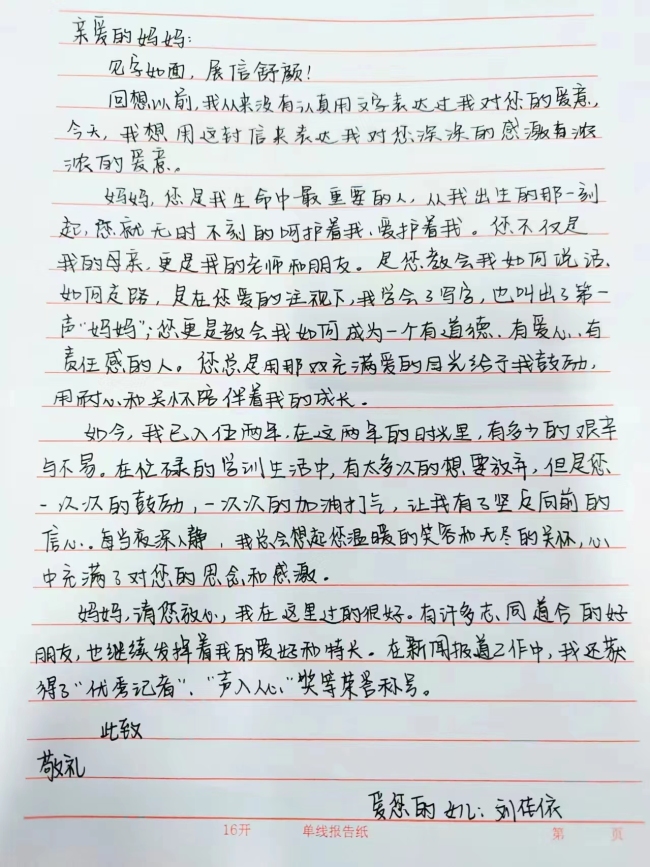 亲爱的妈妈：
见字如面，展信舒颜！
回想以前，我从来没有认真用文字表达过我对您的爱意，
今天，我想用这封信来表达我对您深深的感激有浓
浓的爱意。
妈妈，您是我生命中最重要的人，从我出生的那一刻
起，您就无时不刻的呵护着我、爱护着我。您不仅是
我的母亲，更是我的老师和朋友。是您教会我如何说话、
如何走路，是在您爱的注视下，我学会了写字，也叫出了第一
声“妈妈”；您更是教会我如何成为一个有道德、有爱心、有
责任感的人。您总是用那双充满爱的目光给予我鼓励，
用耐心和关怀陪伴着我的成长。
如今，我已入伍两年，在这两年的时光里，有多少的艰辛
与不易。在忙碌的学训生活中，有太多次的想要放弃，但是您
一次次的鼓励，一次次的加油打气，让我有了坚定向前的
信心。每当夜深人静，我总会想起您温暖的笑容和无尽的关怀，心
中充满了对您的思念和感激。
妈妈，请您放心，我在这里过的很好。有许多志同道合的好
朋友，也继续发挥着我的爱好和特长。在新闻报道工作中，我还获
得了“优秀记者”、“声入人心”奖等荣誉称号。
此致
敬礼
爱您的女儿：刘佳依
16开 单线报告纸 第 页